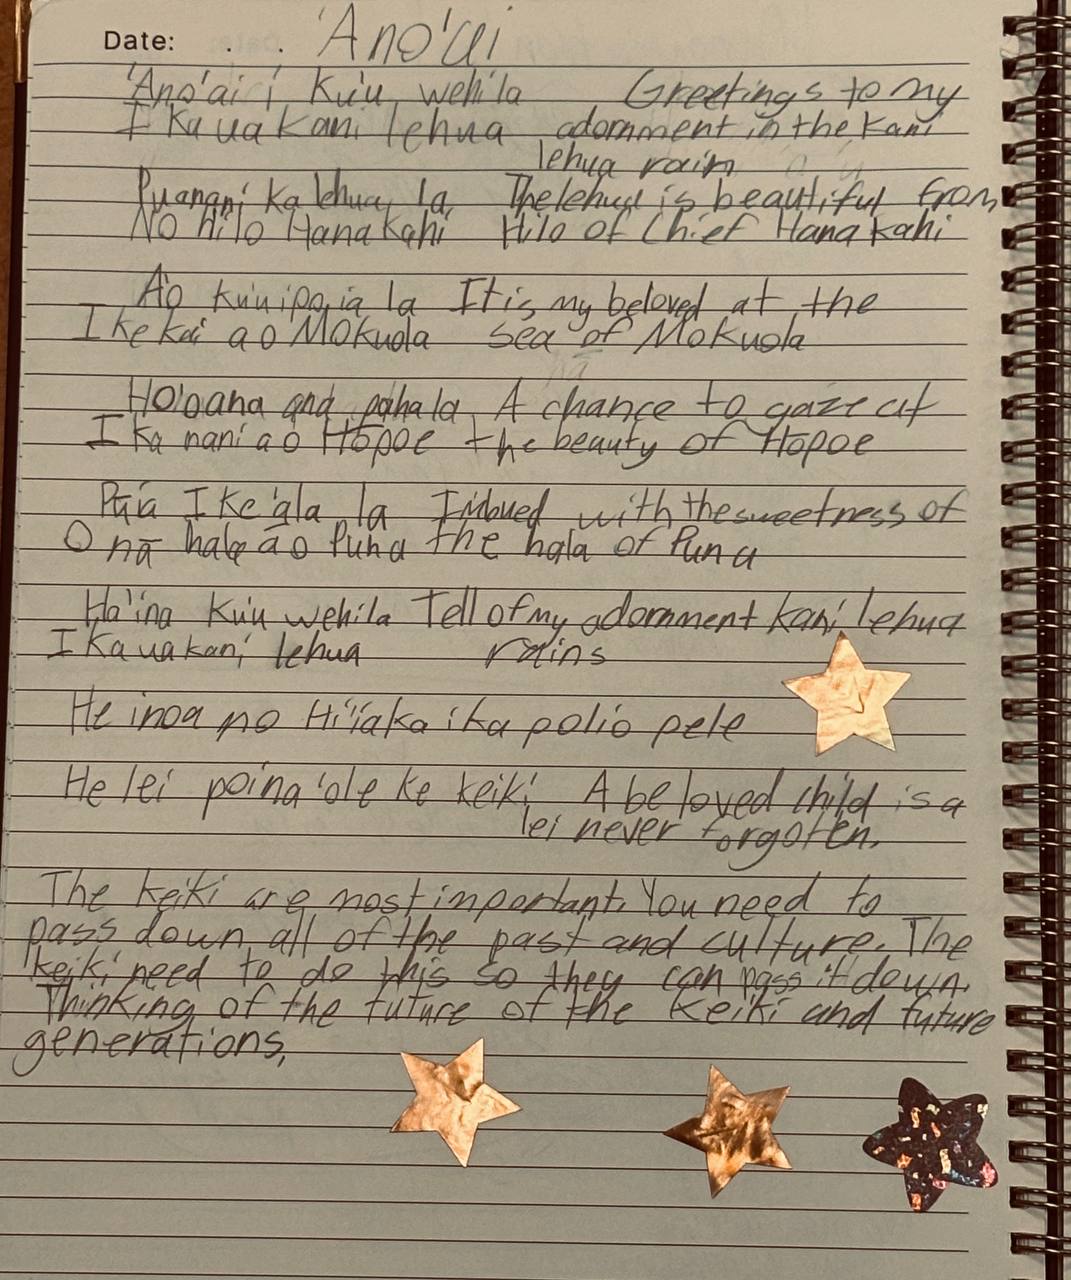 Date: . . 'Ano'ai
'Ano'ai i Ku'u wehi la Greetings to my
I Ka ua Kani lehua adornment in the Kani
lehua rain
Puanani Ka lehua la The lehua is beautiful from
No Hilo Hanakahi Hilo of Chief Hanakahi
A'o ku'uipo ia la It is my beloved at the
I ke kai a o Mokuola sea of Mokuola
Ho'oana and paha la A chance to gaze at
I Ka nani a o Hōpoe the beauty of Hōpoe
Pūia I Ke 'ala la Imbued with the sweetness of
O nā hala ao Puna the hala of Puna
Ha'ina Ku'u wehi la Tell of my adornment kani lehua
I Ka ua kani lehua rains
He inoa no Hi'iaka i ka poli o pele
He lei poina 'ole ke keiki A beloved child is a
lei never forgotten.
The keiki are most important. You need to
pass down all of the past and culture. The
keiki need to do this so they can pass it down.
Thinking of the future of the Keiki and future
generations.